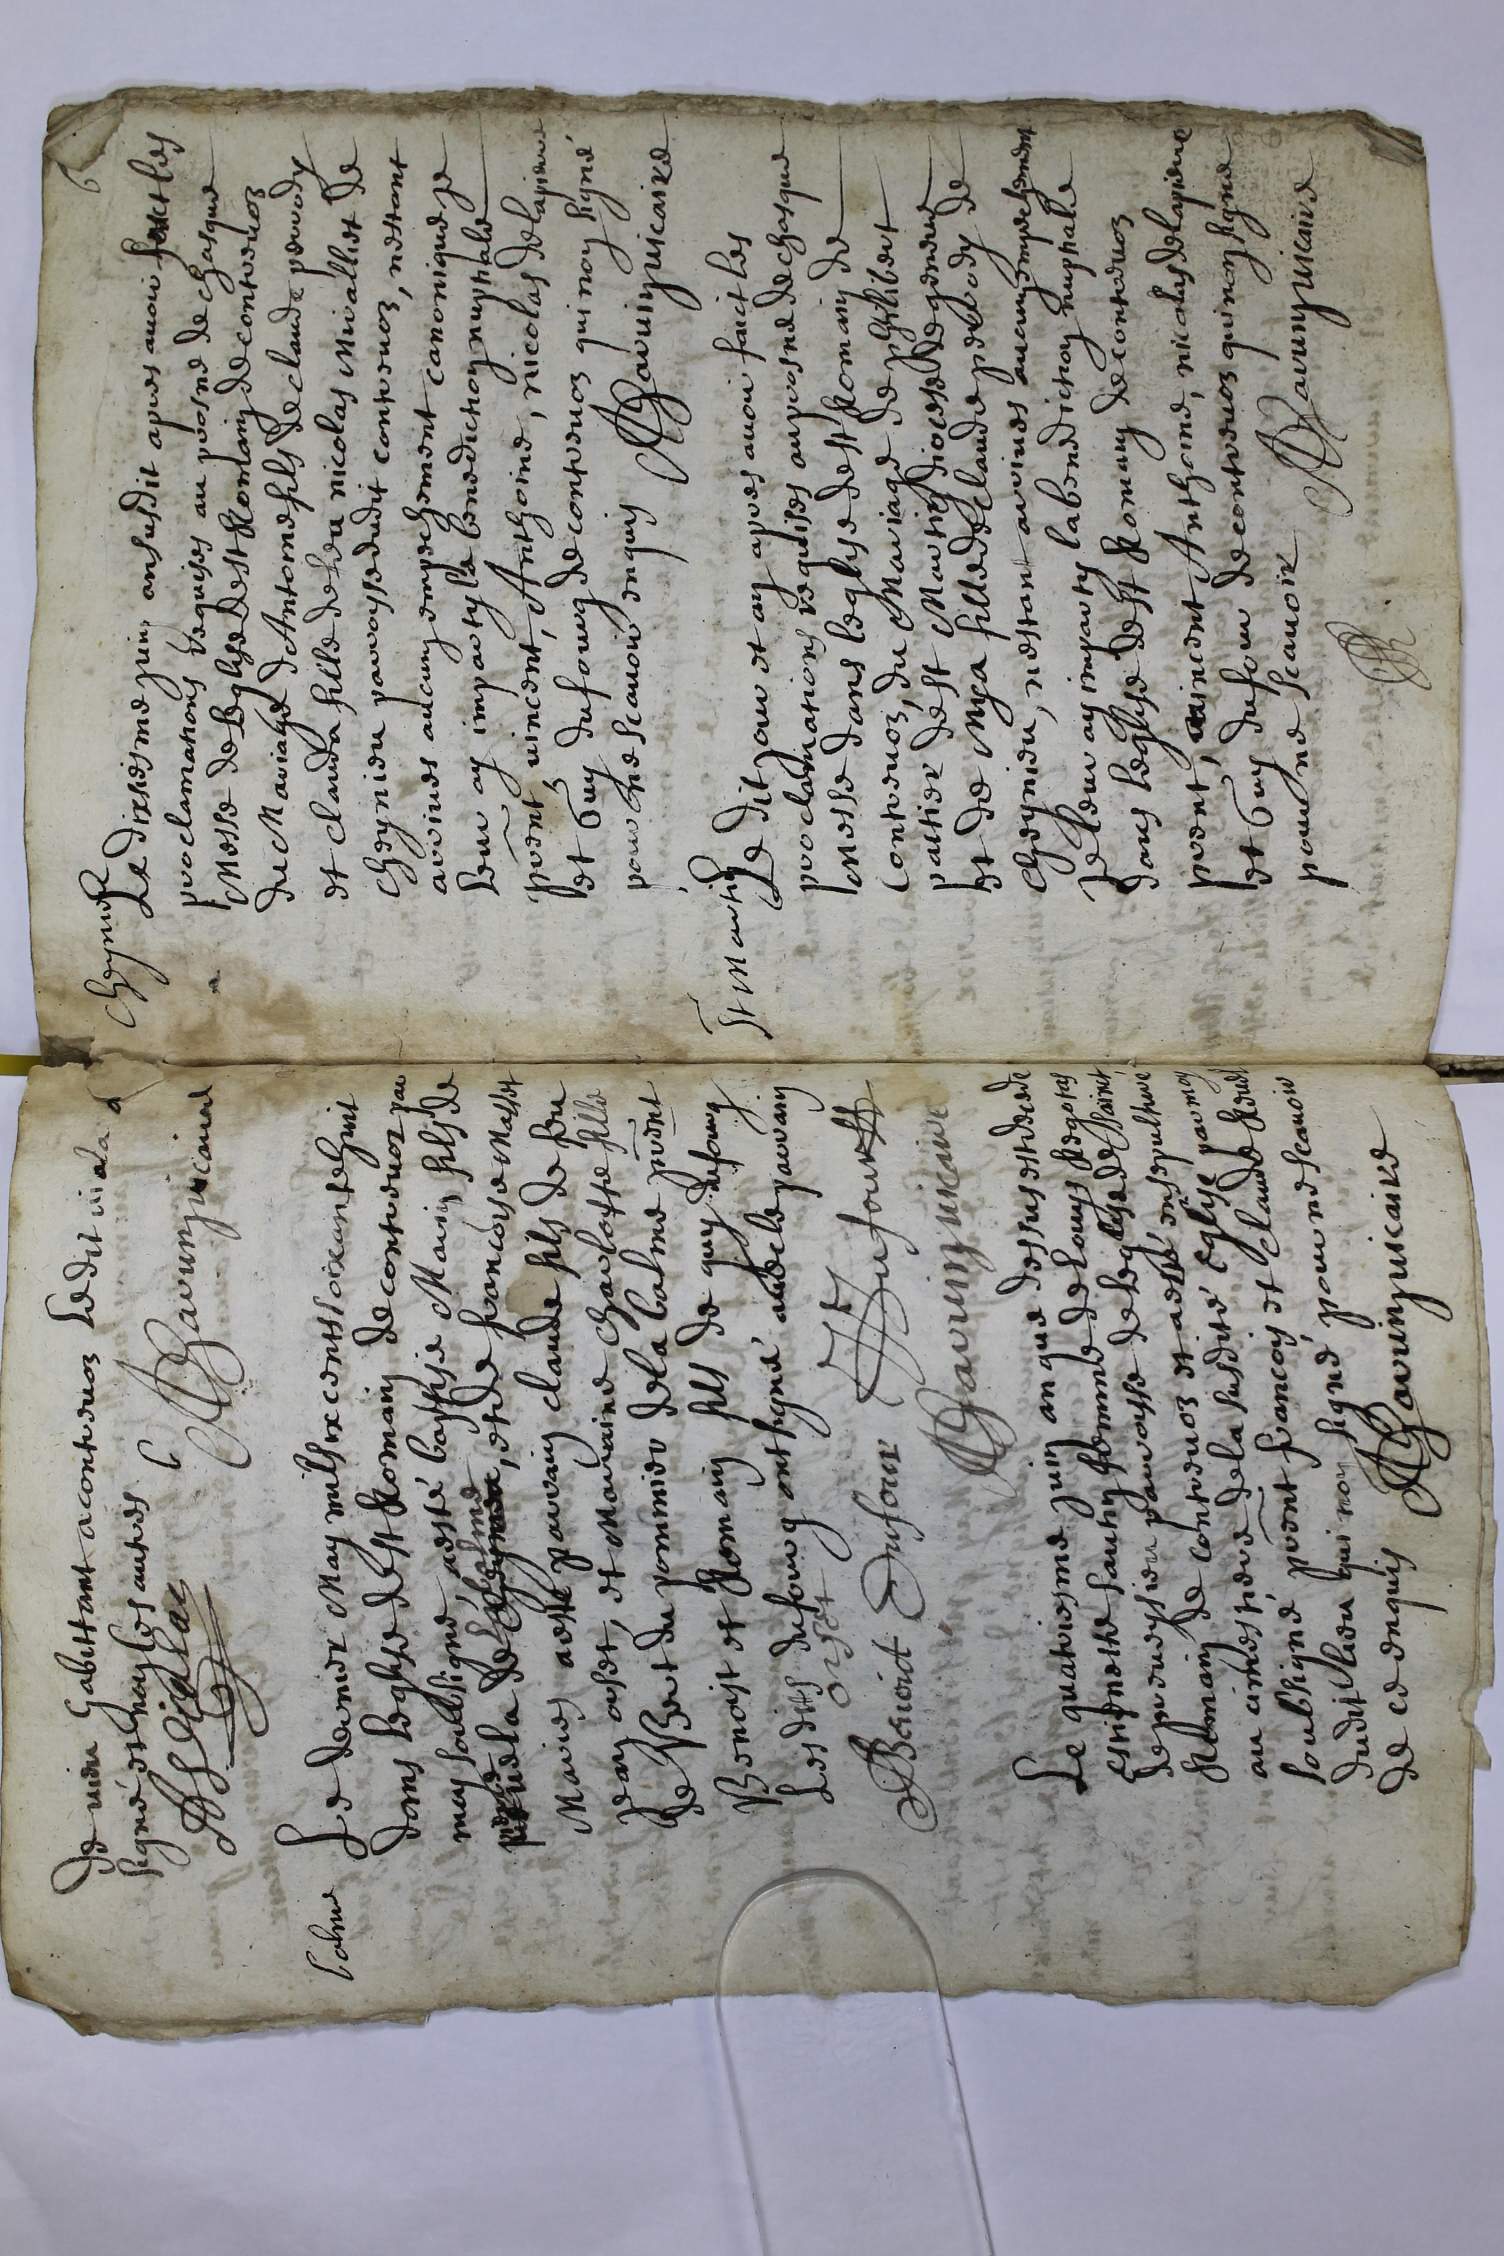 de uieu habittant a contreuoz Ledit uiala a
signé et non les autres
Viala
B Paruin uicaire
Colme
Le dernier May mil six cents soixante huit
dans leglise de St Romain de contreuoz par
moy soubsigné, a esté baptisé Marin fils de
de Colme, et de francoise Masset
Maries a esté parrain claude fils de feu
Jean orset, et Marraine Charlotte fille
de Bert du pommier de la balme pnt
Benoist et Romain fils de guy dufourg
Lesdits dufourg ont signé auec le parrain
orset
Benoict Dufour
Dufour
B Paruin uicaire
Le quatriesme juin an que dessus est decede
Estiennette fantin femme de Louys
de premeysieu parroisse de leglise de saint
Romain de contreuoz et a esté ensepulture
au cimestiere de la susdite Eglise par moy
soubsigné pnt francoys et claude
dudit lieu qui non signé pour ne scauoir
de ce enquis
B Paruin uicaire
6
Cheynieu
Le dixiesme juin an susdit apres auoir faict les
proclamations requises au prosne de chasque
Messe de leglise de St Romain de contreuoz
du Mariage d'Antoine fils de claude perrody
et clauda fille de feu nicolas Miuallier de
Cheynieu parroisse dudit contreuoz, nestant
arriues aucung empechement canonique je
leur ay imparty la benediction nuptiale
pnt, uincent, Anthoine, nicolas delapierre
et Guy dufourg de contreuoz qui non signé
pour ne scauoir enquis
B Paruin uicaire
St Martin
Le dit jour et an apres auoir faict les
proclamations requises au prosne de chasque
Messe dans leglise de St Romain de
Contreuoz, du Mariage de philibert
patier de St Martin diocese de geneue
et de Mya fille de claude perrody de
Cheynieu, nestant arriues aucung empechement
je leur ay imparty la benediction nuptiale
dans leglise de St Romain de contreuoz
pnt, uincent Anthoine, nicolas delapierre
et Guy dufour de contreuoz qui non signe
pour ne scauoir
B Paruin uicaire